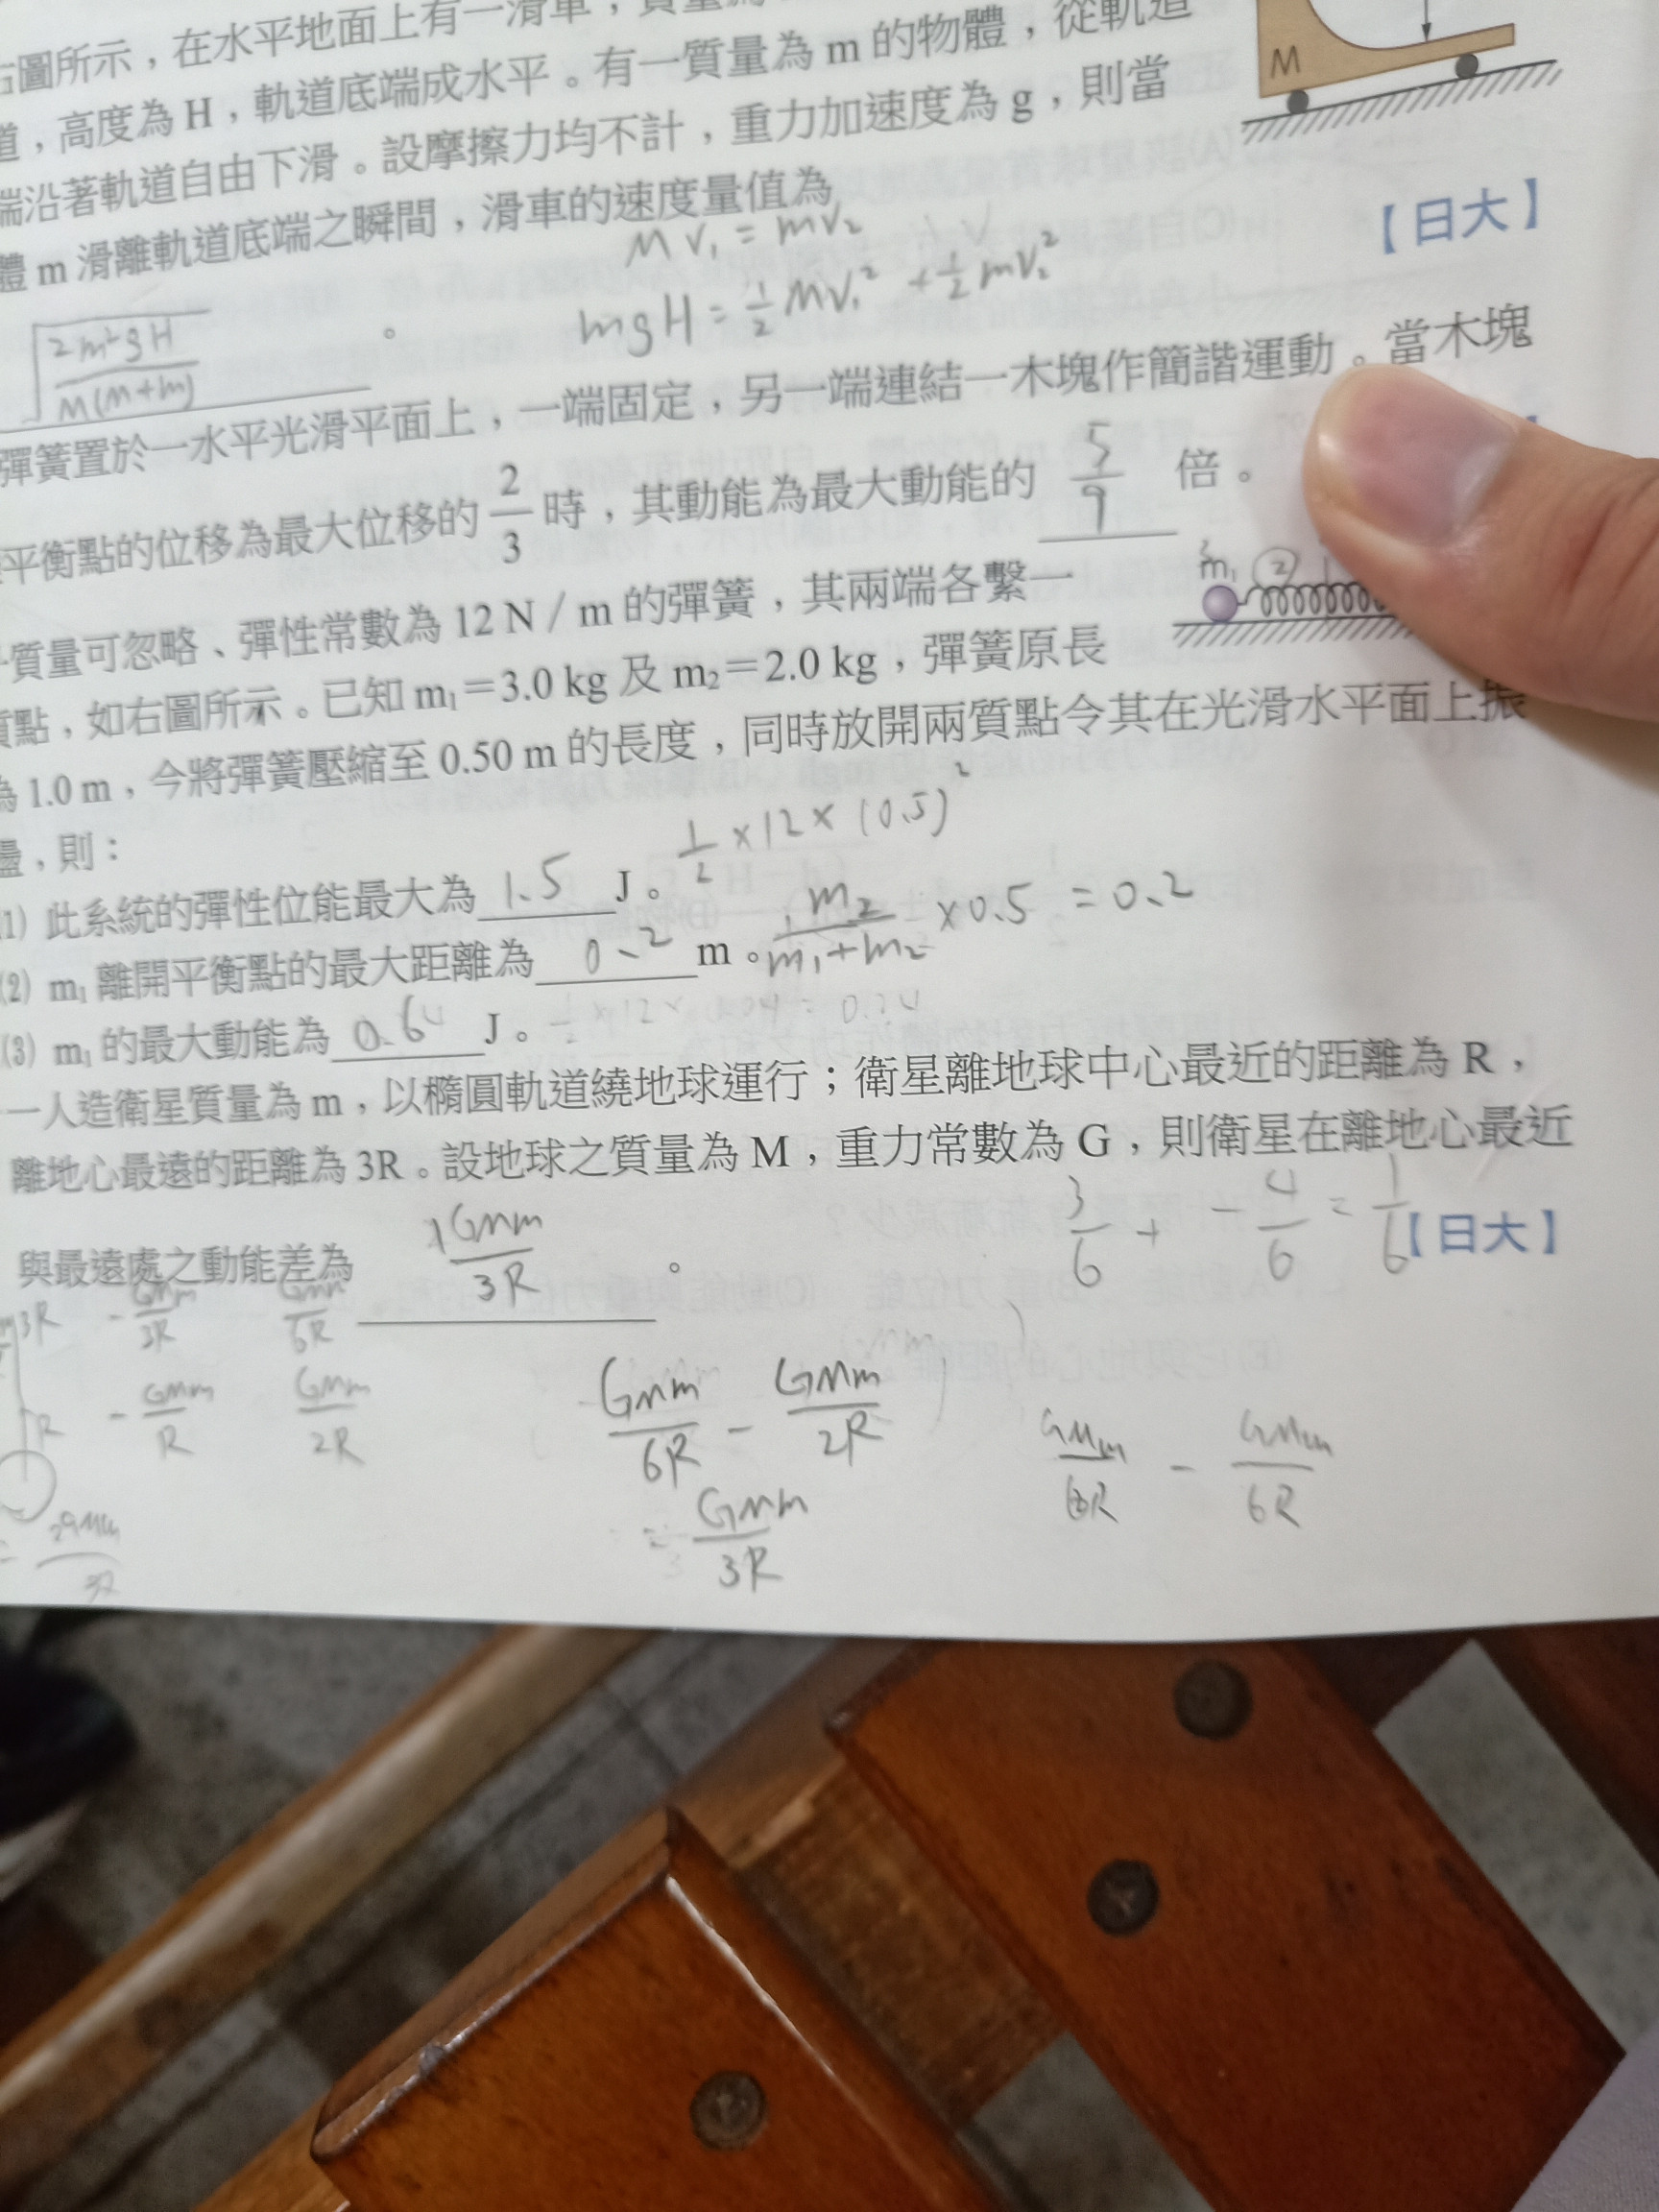 右圖所示，在水平地面上有一滑車，質量為
M
道，高度為 H，軌道底端成水平。有一質量為 m 的物體，從軌道
端沿著軌道自由下滑。設摩擦力均不計，重力加速度為 g，則當
體 m 滑離軌道底端之瞬間，滑車的速度量值為
【日大】
Mv₁ = mv₂
mgH = 1/2 Mv₁² + 1/2 mv₂²
√(2m²gH / M(M+m)) 。
彈簧置於一水平光滑平面上，一端固定，另一端連結一木塊作簡諧運動。當木塊
平衡點的位移為最大位移的 2/3 時，其動能為最大動能的 5/9 倍。
質量可忽略、彈性常數為 12 N／m 的彈簧，其兩端各繫一
3 m₁ 2
質點，如右圖所示。已知 m₁＝3.0 kg 及 m₂＝2.0 kg，彈簧原長
為 1.0 m，今將彈簧壓縮至 0.50 m 的長度，同時放開兩質點令其在光滑水平面上振
盪，則：
1/2 × 12 × (0.5)²
(1) 此系統的彈性位能最大為 1.5 J。
(2) m₁ 離開平衡點的最大距離為 0.2 m。 m₂/(m₁+m₂) × 0.5 = 0.2
(3) m₁ 的最大動能為 0.64 J。 1/2 × 12 × 0.04 = 0.24
一人造衛星質量為 m，以橢圓軌道繞地球運行；衛星離地球中心最近的距離為 R，
離地心最遠的距離為 3R。設地球之質量為 M，重力常數為 G，則衛星在離地心最近
與最遠處之動能差為 GMm/3R 。
3/6 + - 4/6 = 1/6
【日大】
3R - GMm/3R GMm/6R
R - GMm/R GMm/2R
GMm/6R - GMm/2R
= GMm/3R
GMm/6R - GMm/6R